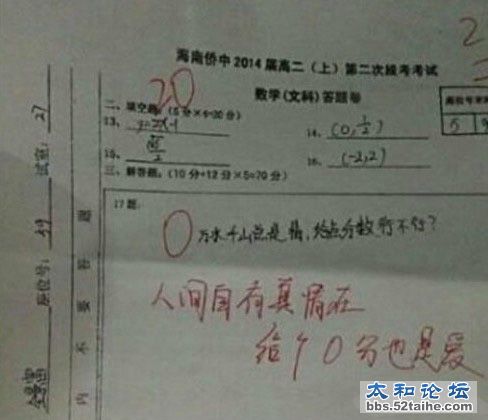 海南侨中2014届高二（上）第二次段考考试
数学(文科)答题卷
20
二、填空题：(5分×4=20分)
13、y=2x-1
14、(0,1/2)
15、
16、(-2,2)
三、解答题：(10分+12分×5=70分)
17题：
0
万水千山总是情,给点分数行不行?
人间自有真情在
给个0分也是爱
试室：27
座位号：
内 不 要 答 题
太和论坛
bbs.52taihe.com